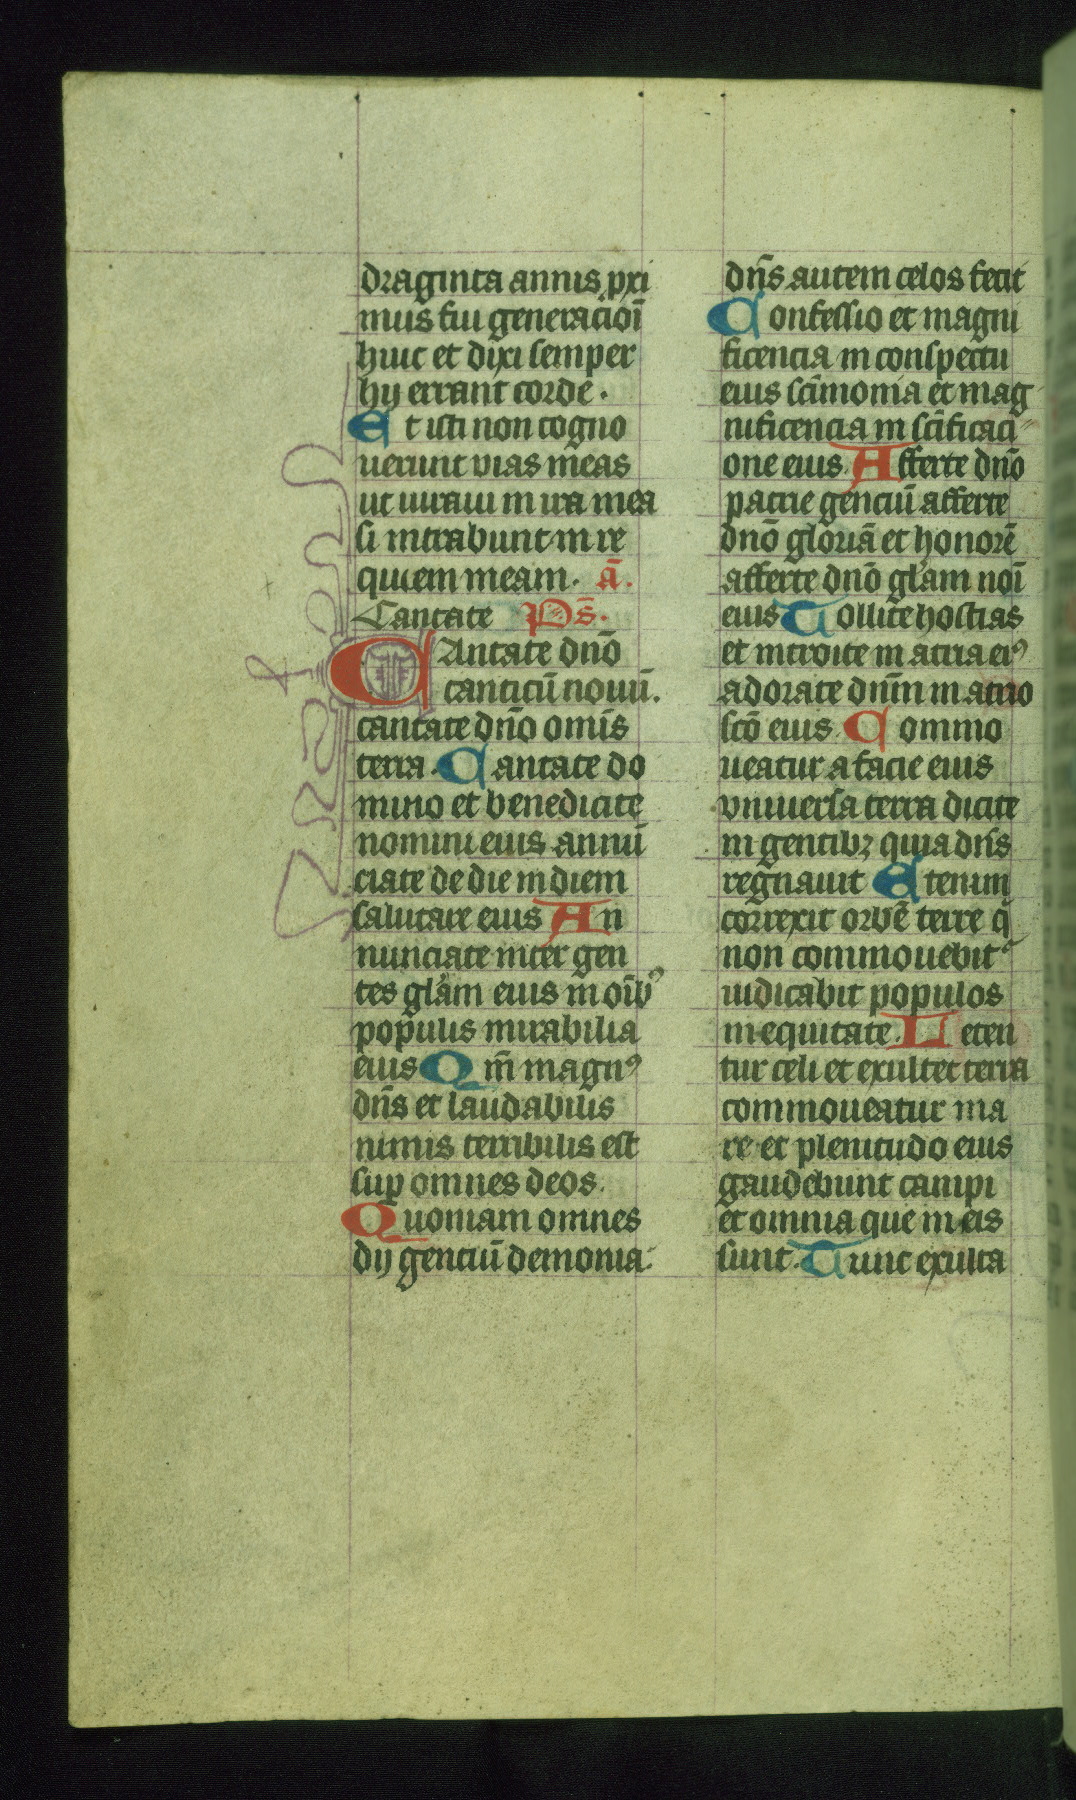 draginta annis p̱xi
mus fui generacioī
huic et dixi semper
hij errant corde.
Et isti non cogno
uerunt vias meas
ut iuraui in ira mea
si intrabunt in re
quiem meam. ā.
Cantate Ps̄.
CAntate dn̄o
canticū nouū.
cantate dn̄o omīs
terra. Cantate do
mino et benedicite
nomini eius annū
ciate de die in diem
salutare eius An
nunciate inter gen
tes glām eius in oībꝰ
populis mirabilia
eius Qm̄ magnꝰ
dn̄s et laudabilis
nimis terribilis est
suꝑ omnes deos.
Quoniam omnes
dij genciū demonia
dn̄s autem celos fecit
Confessio et magni
ficencia in conspectu
eius scīmonia et mag
nificencia in scīficaci
one eius. Afferte dn̄o
patrie genciū afferte
dn̄o gloriā et honorē
afferte dn̄o glām noī
eius Tollite hostias
et introite in atria eiꝰ
adorate dnīn in atrio
scō eius. Commo
ueatur a facie eius
vniuersa terra dicite
in gentibꝫ quia dn̄s
regnauit Etenim
correxit orbē terre q̄
non commouebit᷑
iudicabit populos
in equitate. Leten
tur celi et exultet terra
commoueatur ma
re et plenitudo eius
gaudebunt campi
et omnia que in eis
sunt. Tunc exulta